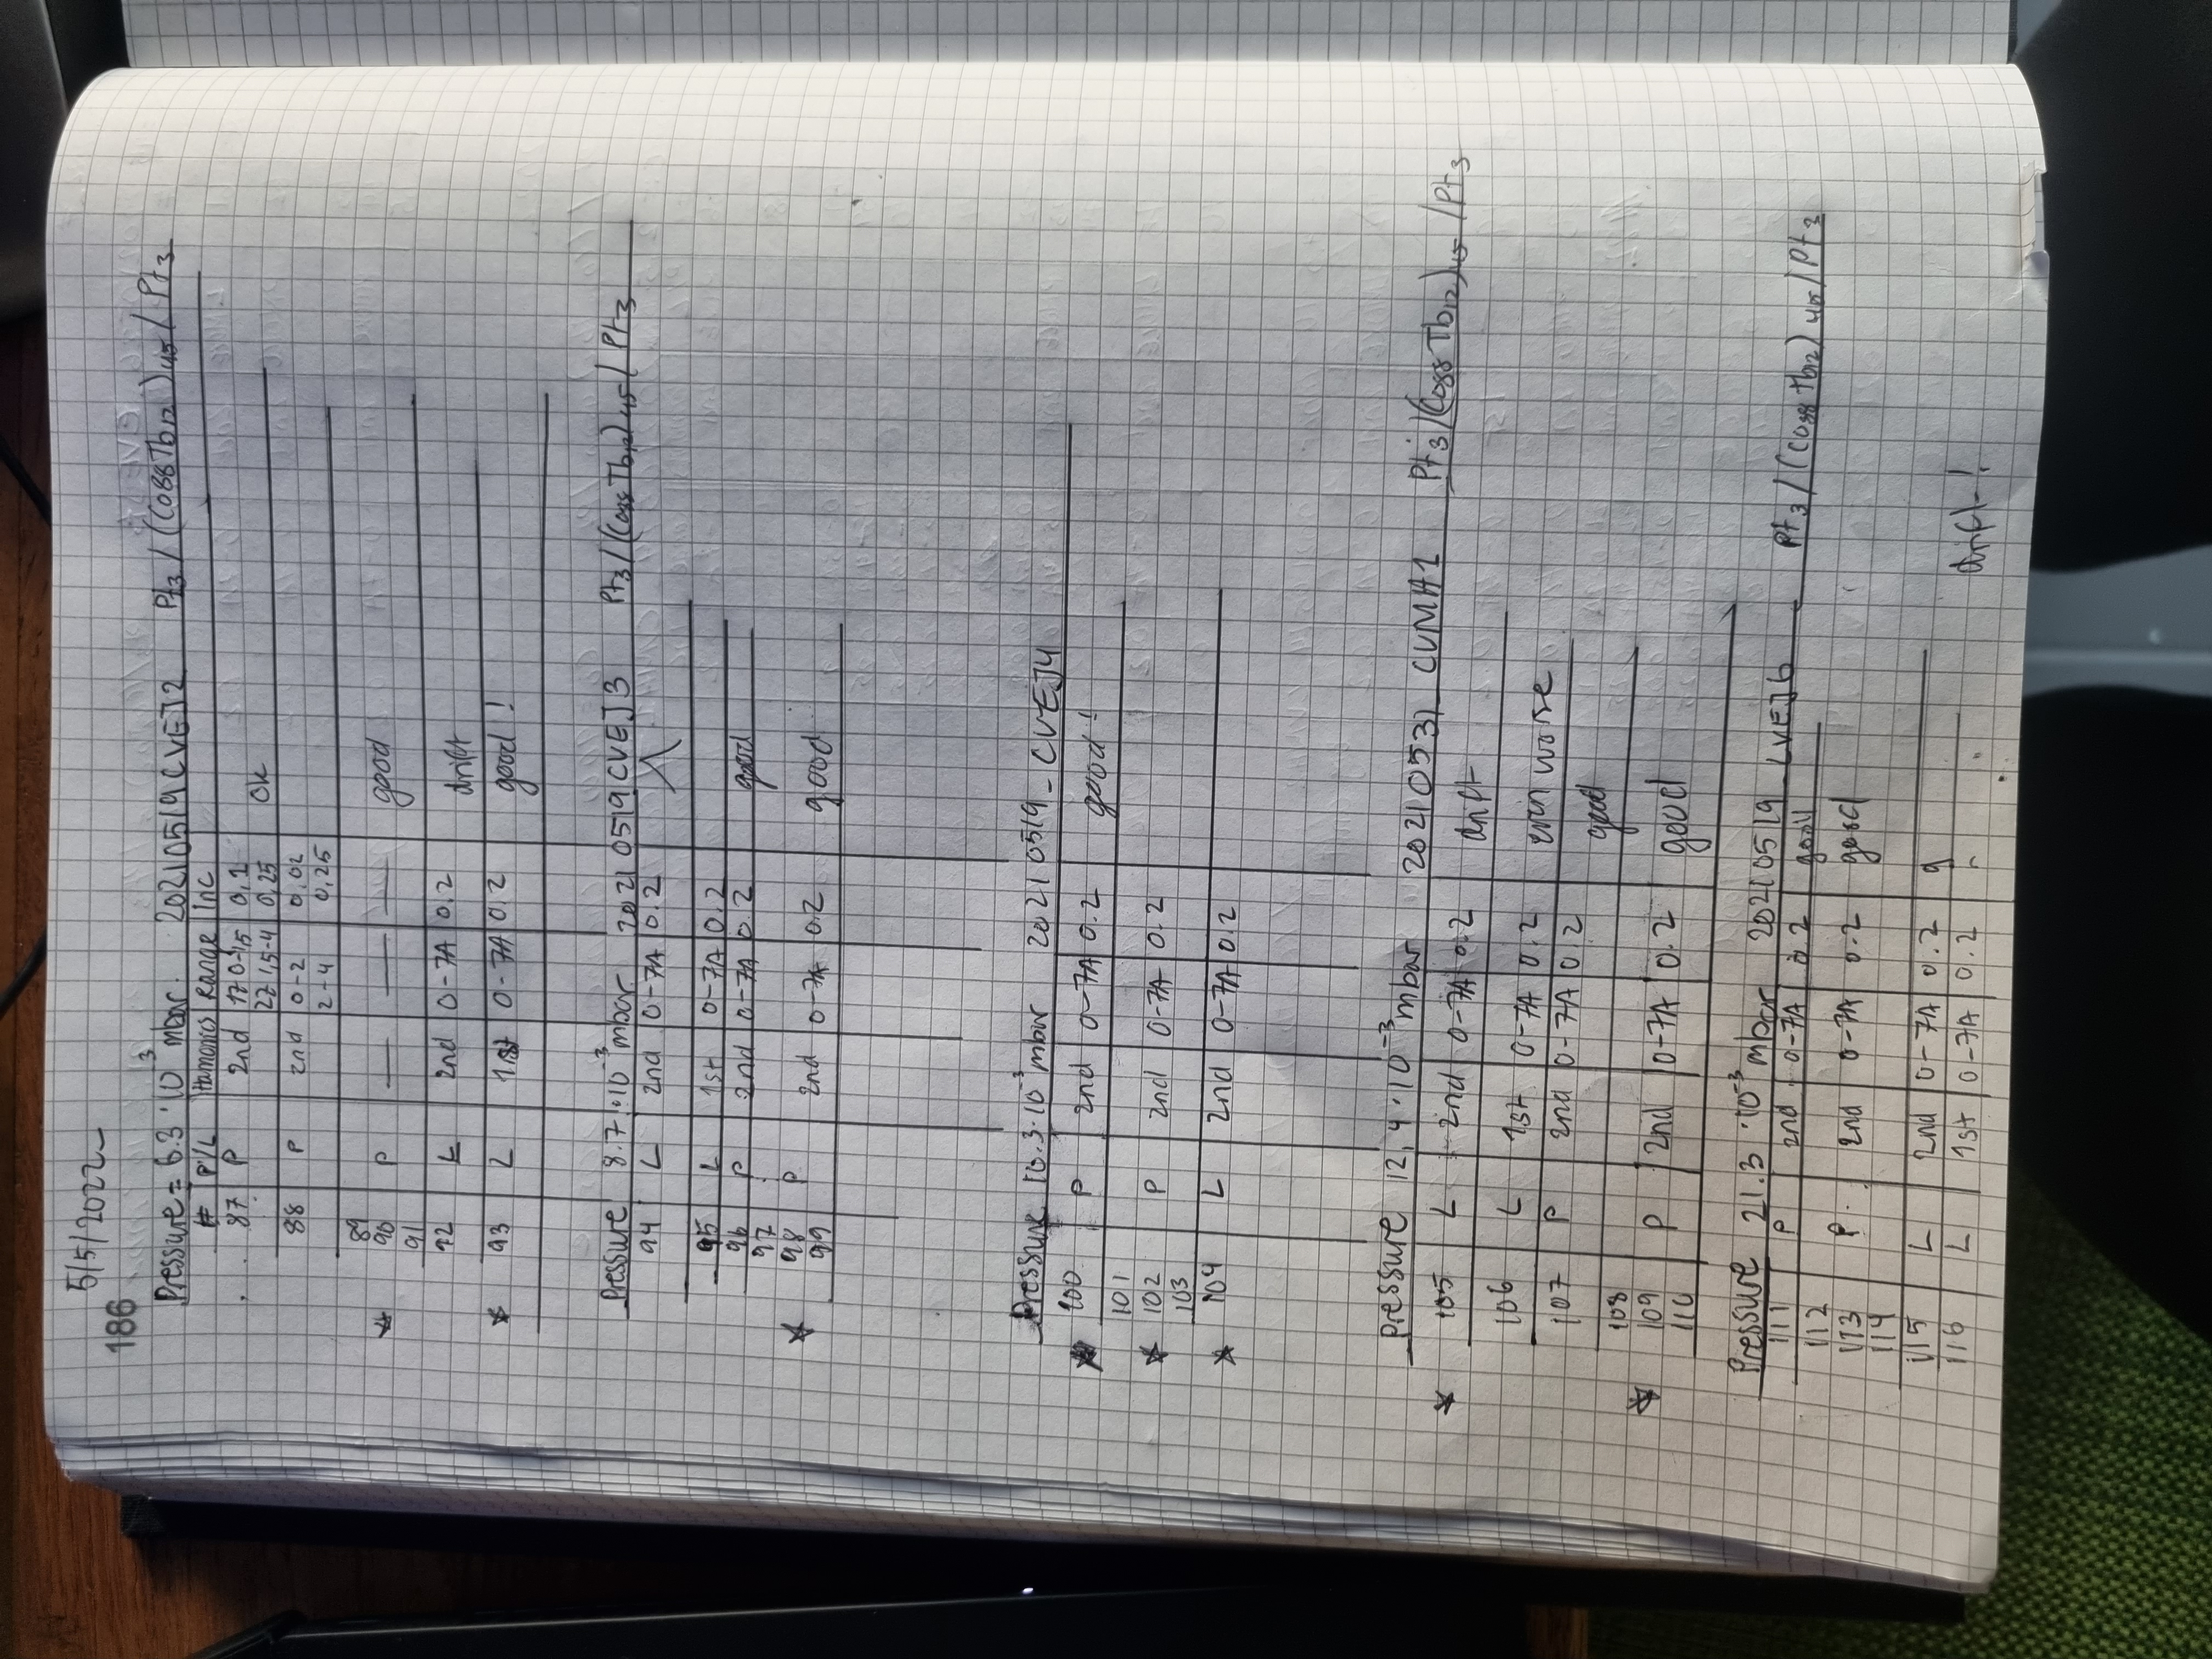 5/5/2022
186
Pressure = 6.3 · 10⁻³ mbar. 20210519CVEJ2 Pt₃/(Co88Tb₁₂)₄₅/Pt₃
# P/L Hamonics Range Inc
87 P 2nd 1Z 0-1,5 0,1
2Z 1,5-4 0,25 ok
88 P 2nd 0-2 0,02
2-4 0,25
89
★ 90 P — — — good
91
92 L 2nd 0-7A 0.2 drift
★ 93 L 1st 0-7A 0.2 good!
Pressure 8.7·10⁻³mbar. 20210519CVEJ3 Pt₃/(Co₈₈Tb₁₂)₄₅/Pt₃
94 L 2nd 0-7A 0.2
95 L 1st 0-7A 0.2
96 P 2nd 0-7A 0.2 good
97
★ 98 P
99 2nd 0-7A 0.2 good
Pressure 10.3·10⁻³mbar 20210519_CVEJ4
★ 100 P 2nd 0-7A 0.2 good!
101
★ 102 P 2nd 0-7A 0.2
103
★ 104 L 2nd 0-7A 0.2
Pressure 12,4·10⁻³mbar 20210531_CVMA1 Pt₃/(Co88Tb₁₂)₄₅/Pt₃
★ 105 L 2nd 0-7A 0.2 drift
106 L 1st 0-7A 0.2 even worse
107 P 2nd 0-7A 0.2 good
108
★ 109 P 2nd 0-7A 0.2 good
110
Pressure 21.3 ·10⁻³mbar 20210519_CVEJ6 Pt₃/(Co₈₈Tb₁₂)₄₅/Pt₃
111 P 2nd 0-7A 0.2 good
112
113 P 2nd 0-7A 0.2 good
114
115 L 2nd 0-7A 0.2 g
116 L 1st 0-7A 0.2 drift!